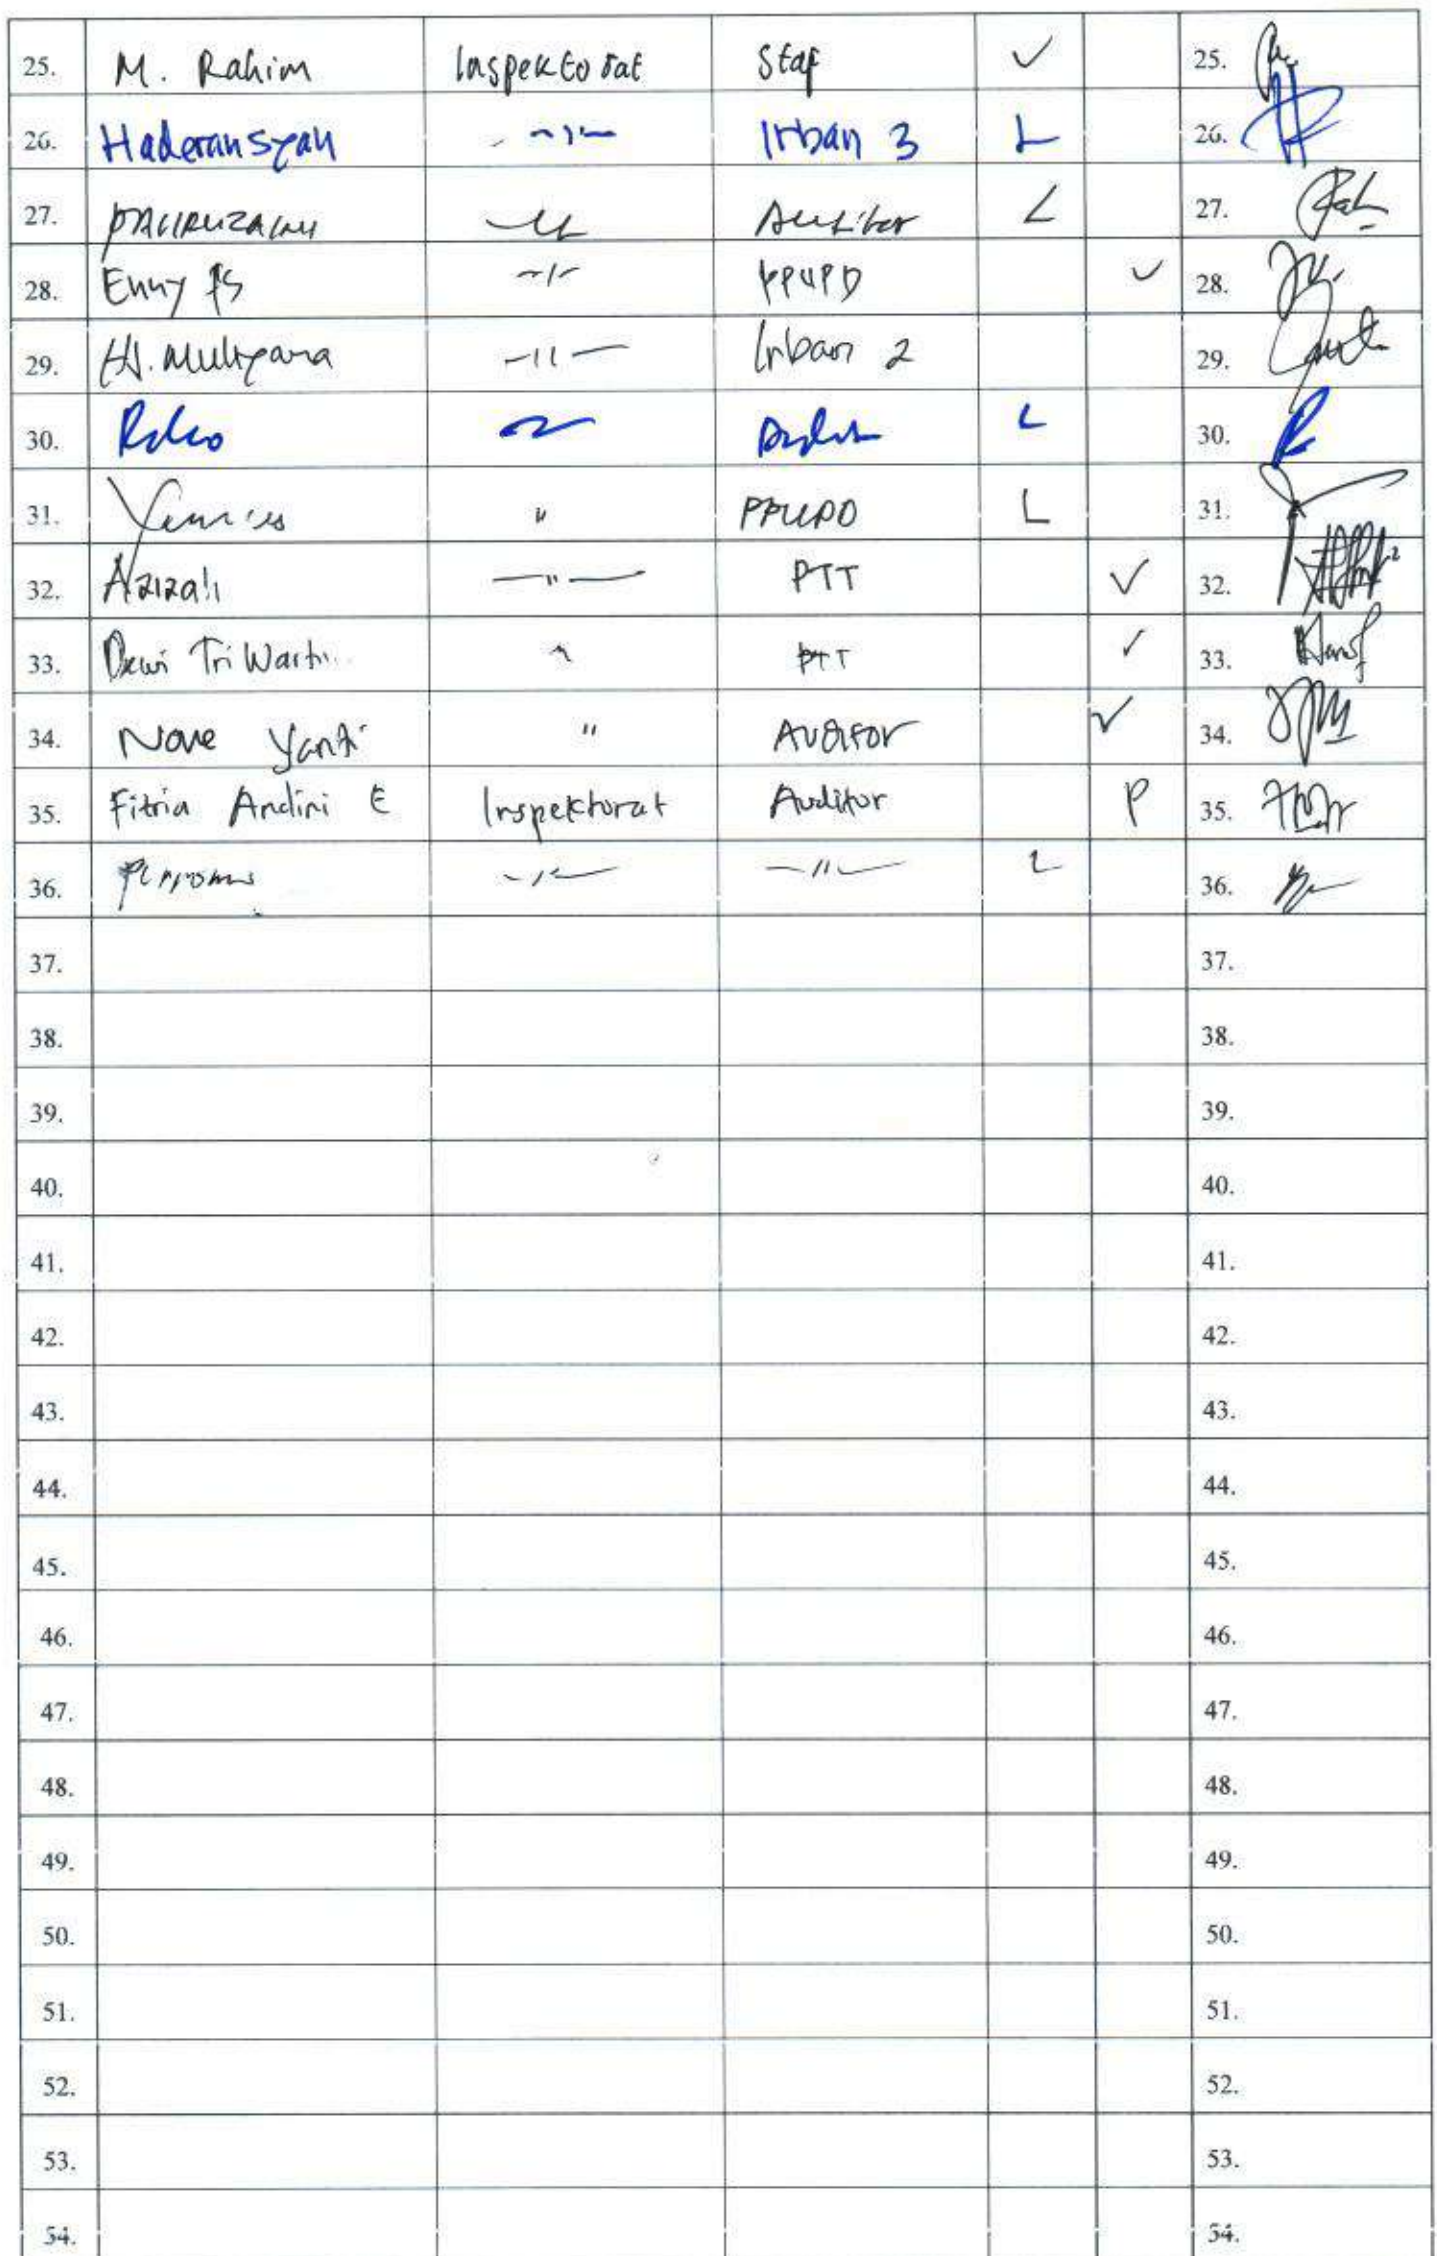 25. M. Rahim Inspektorat Staf ✓ 25.
26. Haderansyah -〃- Irban 3 L 26.
27. -〃- Auditor L 27.
28. Enny -〃- PPUPD ✓ 28.
29. Hj. Mulyana -〃- Irban 2 29.
30. L 30.
31. 〃 PPUPD L 31.
32. Azizah -〃- PTT ✓ 32.
33. Dewi Tri 〃 PTT ✓ 33.
34. Nove Yanti 〃 Auditor ✓ 34.
35. Fitria Andini E Inspektorat Auditor P 35.
36. -〃- -〃- L 36.
37. 37.
38. 38.
39. 39.
40. 40.
41. 41.
42. 42.
43. 43.
44. 44.
45. 45.
46. 46.
47. 47.
48. 48.
49. 49.
50. 50.
51. 51.
52. 52.
53. 53.
54. 54.